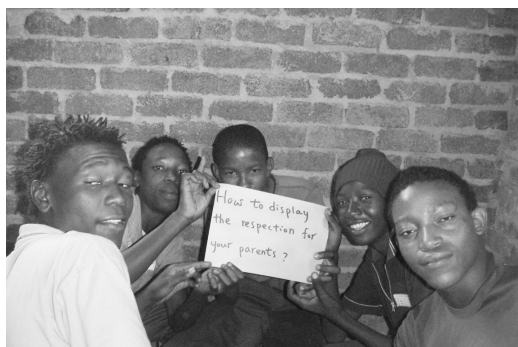 How to display
the respection for
your parents ?